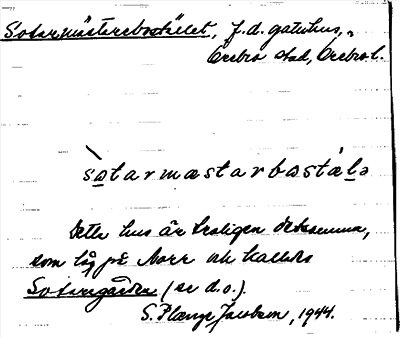 Sotarmästarebostället, f.d. gatuhus,
Örebro stad, Örebro l.
sotarmæstarbostælə
Detta hus är troligen detsamma,
som låg på Norr och kallades
Sotaregården (se d.o.).
S. Plænge Jacobson, 1944.